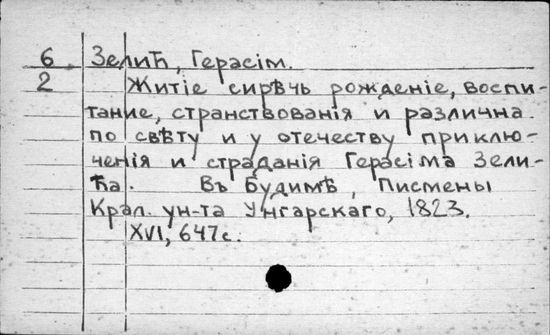 6 Зелић, Герасім.
2 Житіе сирѣчь рожденіе, воспи-
тание, странствованія и различна
по свѣту и у отечеству приклю-
ченія и страданія Герасіма Зели-
ћа. Въ Будимѣ, Писмены
Крал. ун-та Унгарскаго, 1823.
XVI, 647с.